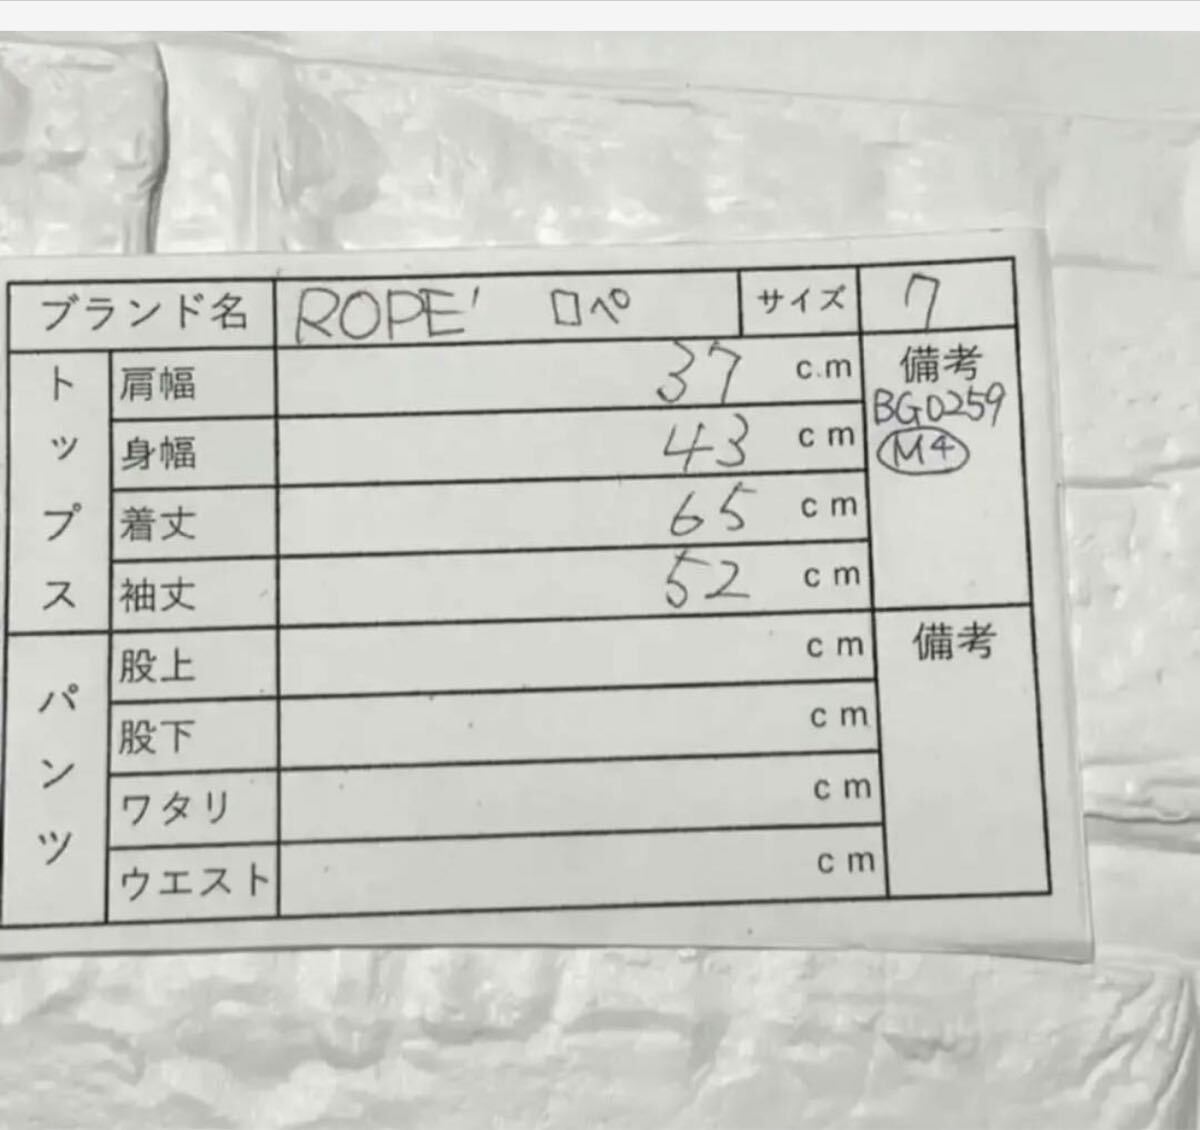 ブランド名 ROPE' ロペ サイズ 7
トップス
肩幅 37 cm
身幅 43 cm
着丈 65 cm
袖丈 52 cm
備考
BG0259
M4
パンツ
股上 cm
股下 cm
ワタリ cm
ウエスト cm
備考